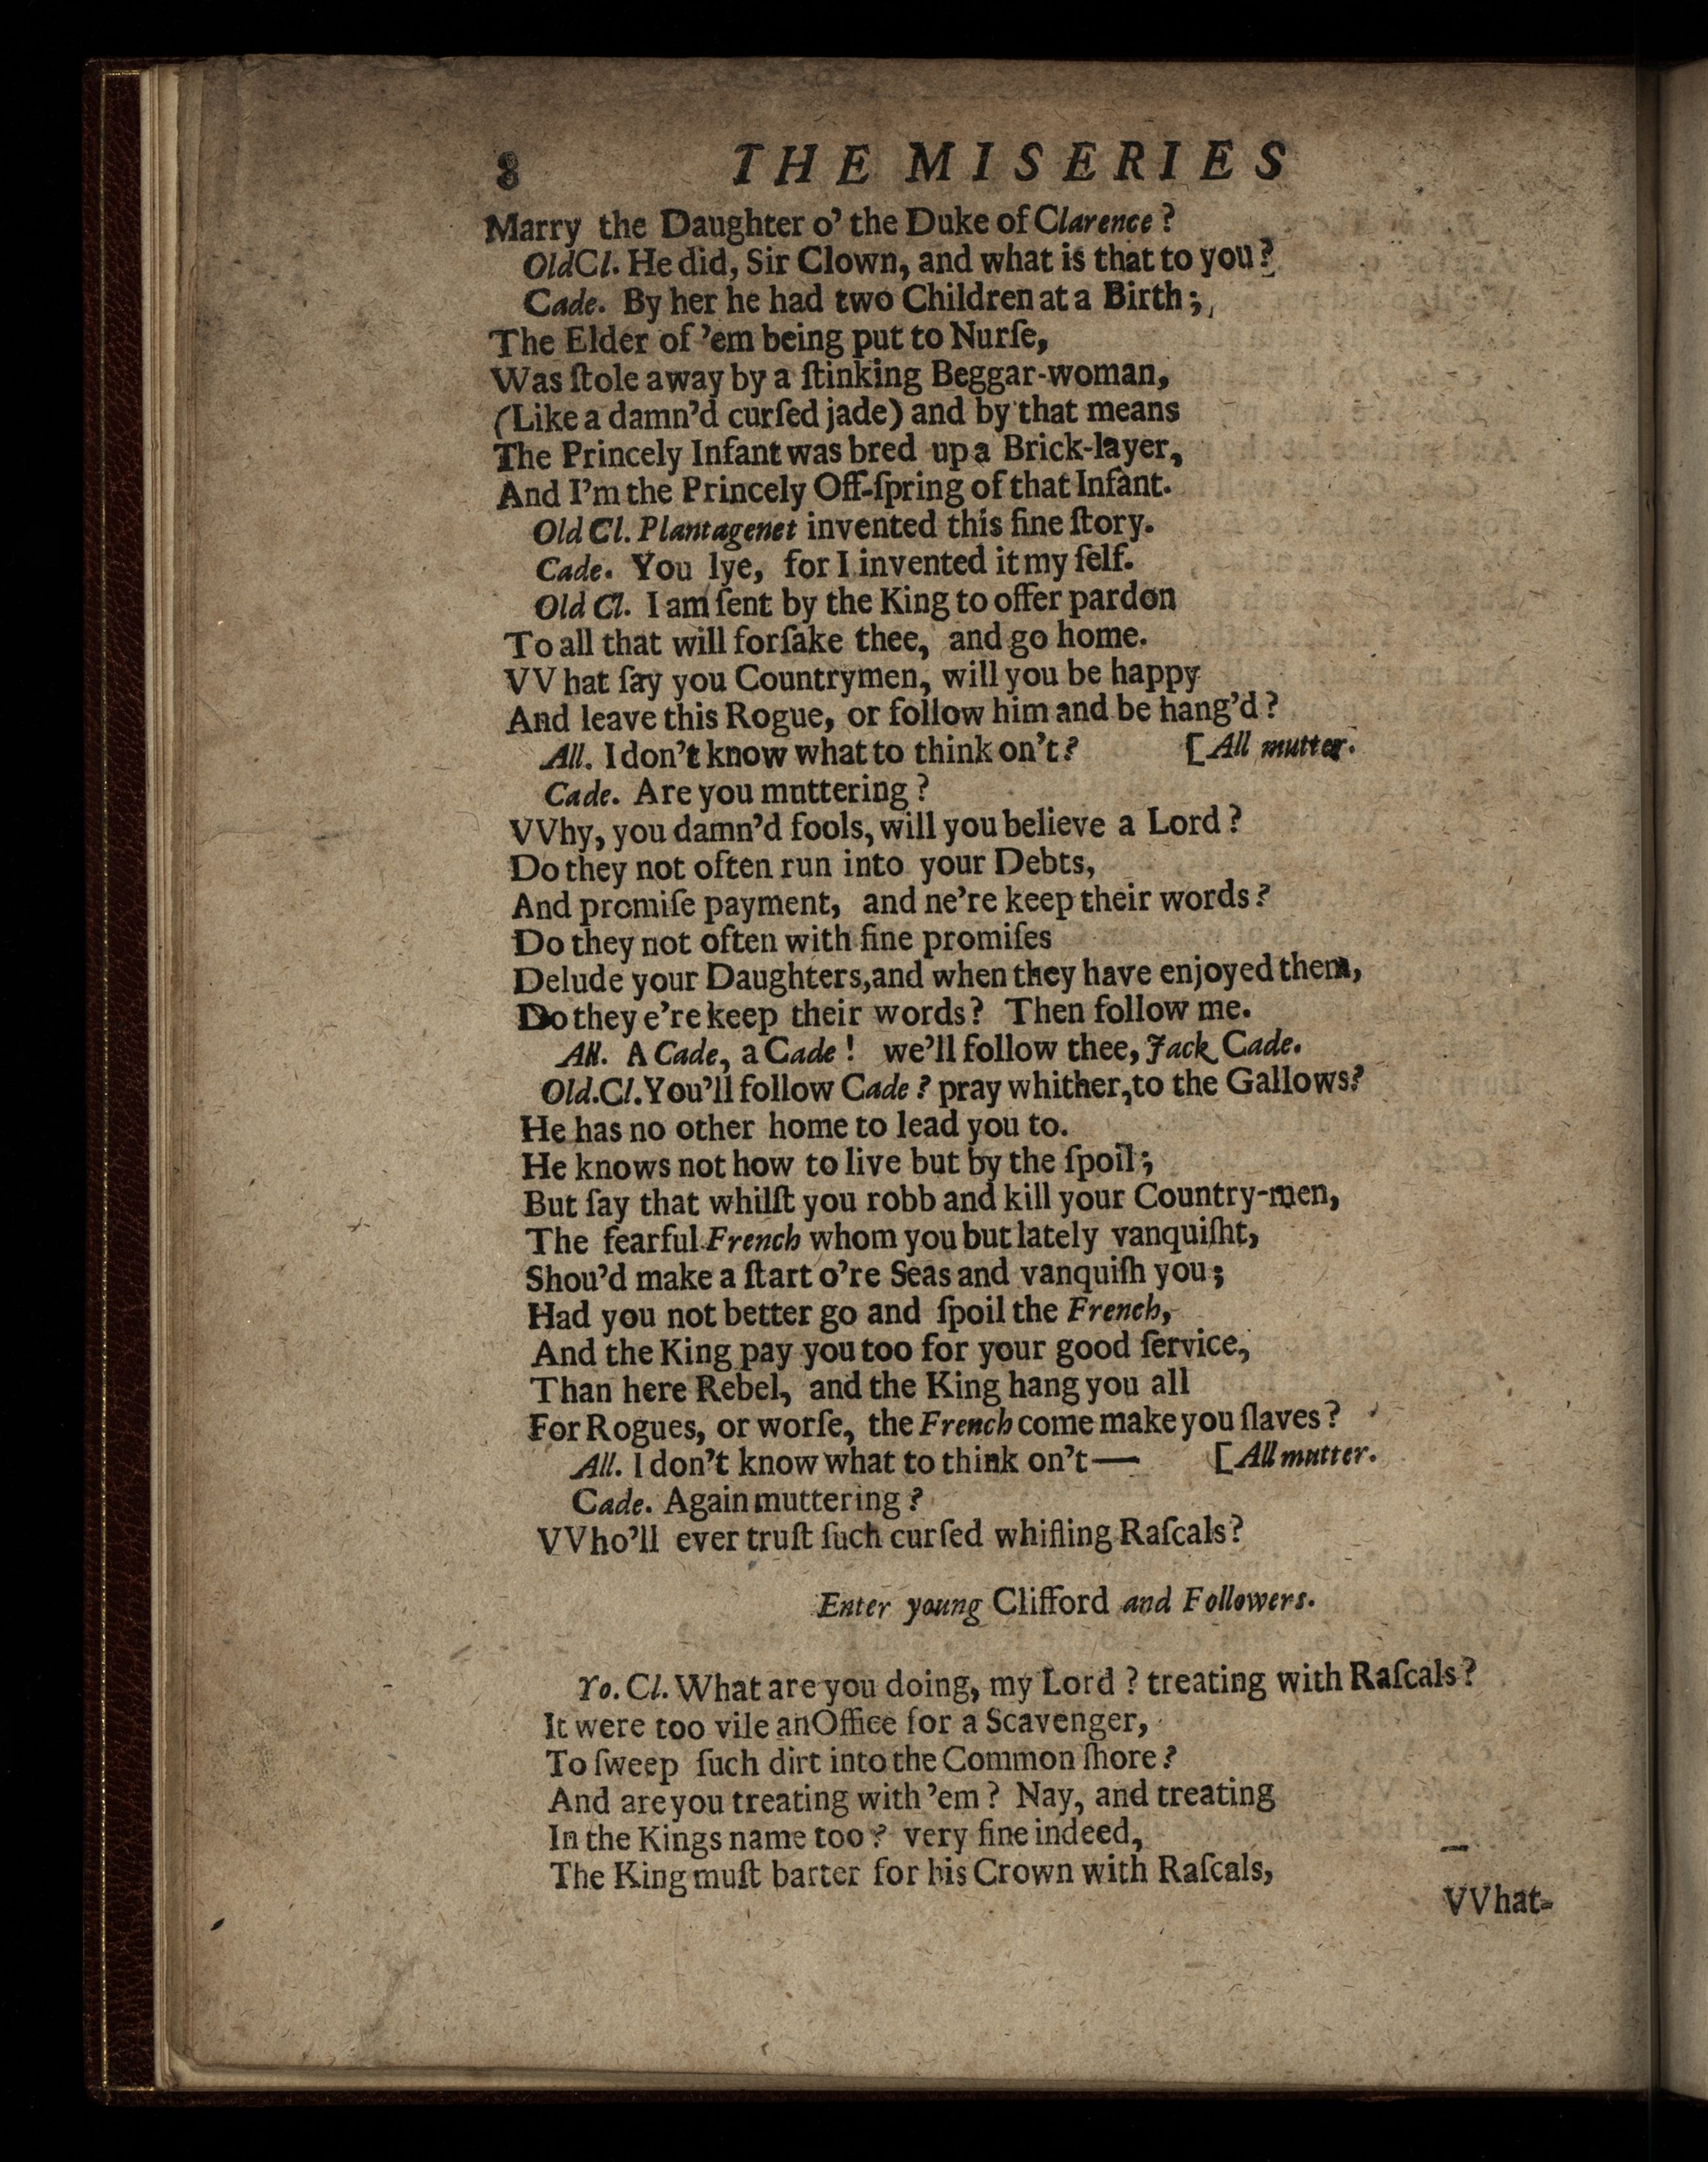 8 THE MISERIES
Marry the Daughter o' the Duke of Clarence?
Old Cl. He did, Sir Clown, and what is that to you?
Cade. By her he had two Children at a Birth;
The Elder of 'em being put to Nurſe,
Was ſtole away by a ſtinking Beggar-woman,
(Like a damn'd curſed jade) and by that means
The Princely Infant was bred up a Brick-layer,
And I'm the Princely Off-ſpring of that Infant.
Old Cl. Plantagenet invented this fine ſtory.
Cade. You lye, for I invented it my ſelf.
Old Cl. I am ſent by the King to offer pardon
To all that will forſake thee, and go home.
VVhat ſay you Countrymen, will you be happy
And leave this Rogue, or follow him and be hang'd?
All. I don't know what to think on't? [All mutter.
Cade. Are you muttering?
VVhy, you damn'd fools, will you believe a Lord?
Do they not often run into your Debts,
And promiſe payment, and ne're keep their words?
Do they not often with fine promiſes
Delude your Daughters, and when they have enjoyed them,
Do they e're keep their words? Then follow me.
All. A Cade, a Cade! we'll follow thee, Jack Cade.
Old.Cl. You'll follow Cade? pray whither, to the Gallows?
He has no other home to lead you to.
He knows not how to live but by the ſpoil;
But ſay that whilſt you robb and kill your Country-men,
The fearful French whom you but lately vanquiſht,
Shou'd make a ſtart o're Seas and vanquiſh you;
Had you not better go and ſpoil the French,
And the King pay you too for your good ſervice,
Than here Rebel, and the King hang you all
For Rogues, or worſe, the French come make you ſlaves?
All. I don't know what to think on't— [All mutter.
Cade. Again muttering?
VVho'll ever truſt ſuch curſed whifling Raſcals?
Enter young Clifford and Followers.
Yo. Cl. What are you doing, my Lord? treating with Raſcals?
It were too vile an Office for a Scavenger,
To ſweep ſuch dirt into the Common ſhore?
And are you treating with 'em? Nay, and treating
In the Kings name too? very fine indeed,
The King muſt barter for his Crown with Raſcals,
VVhat-